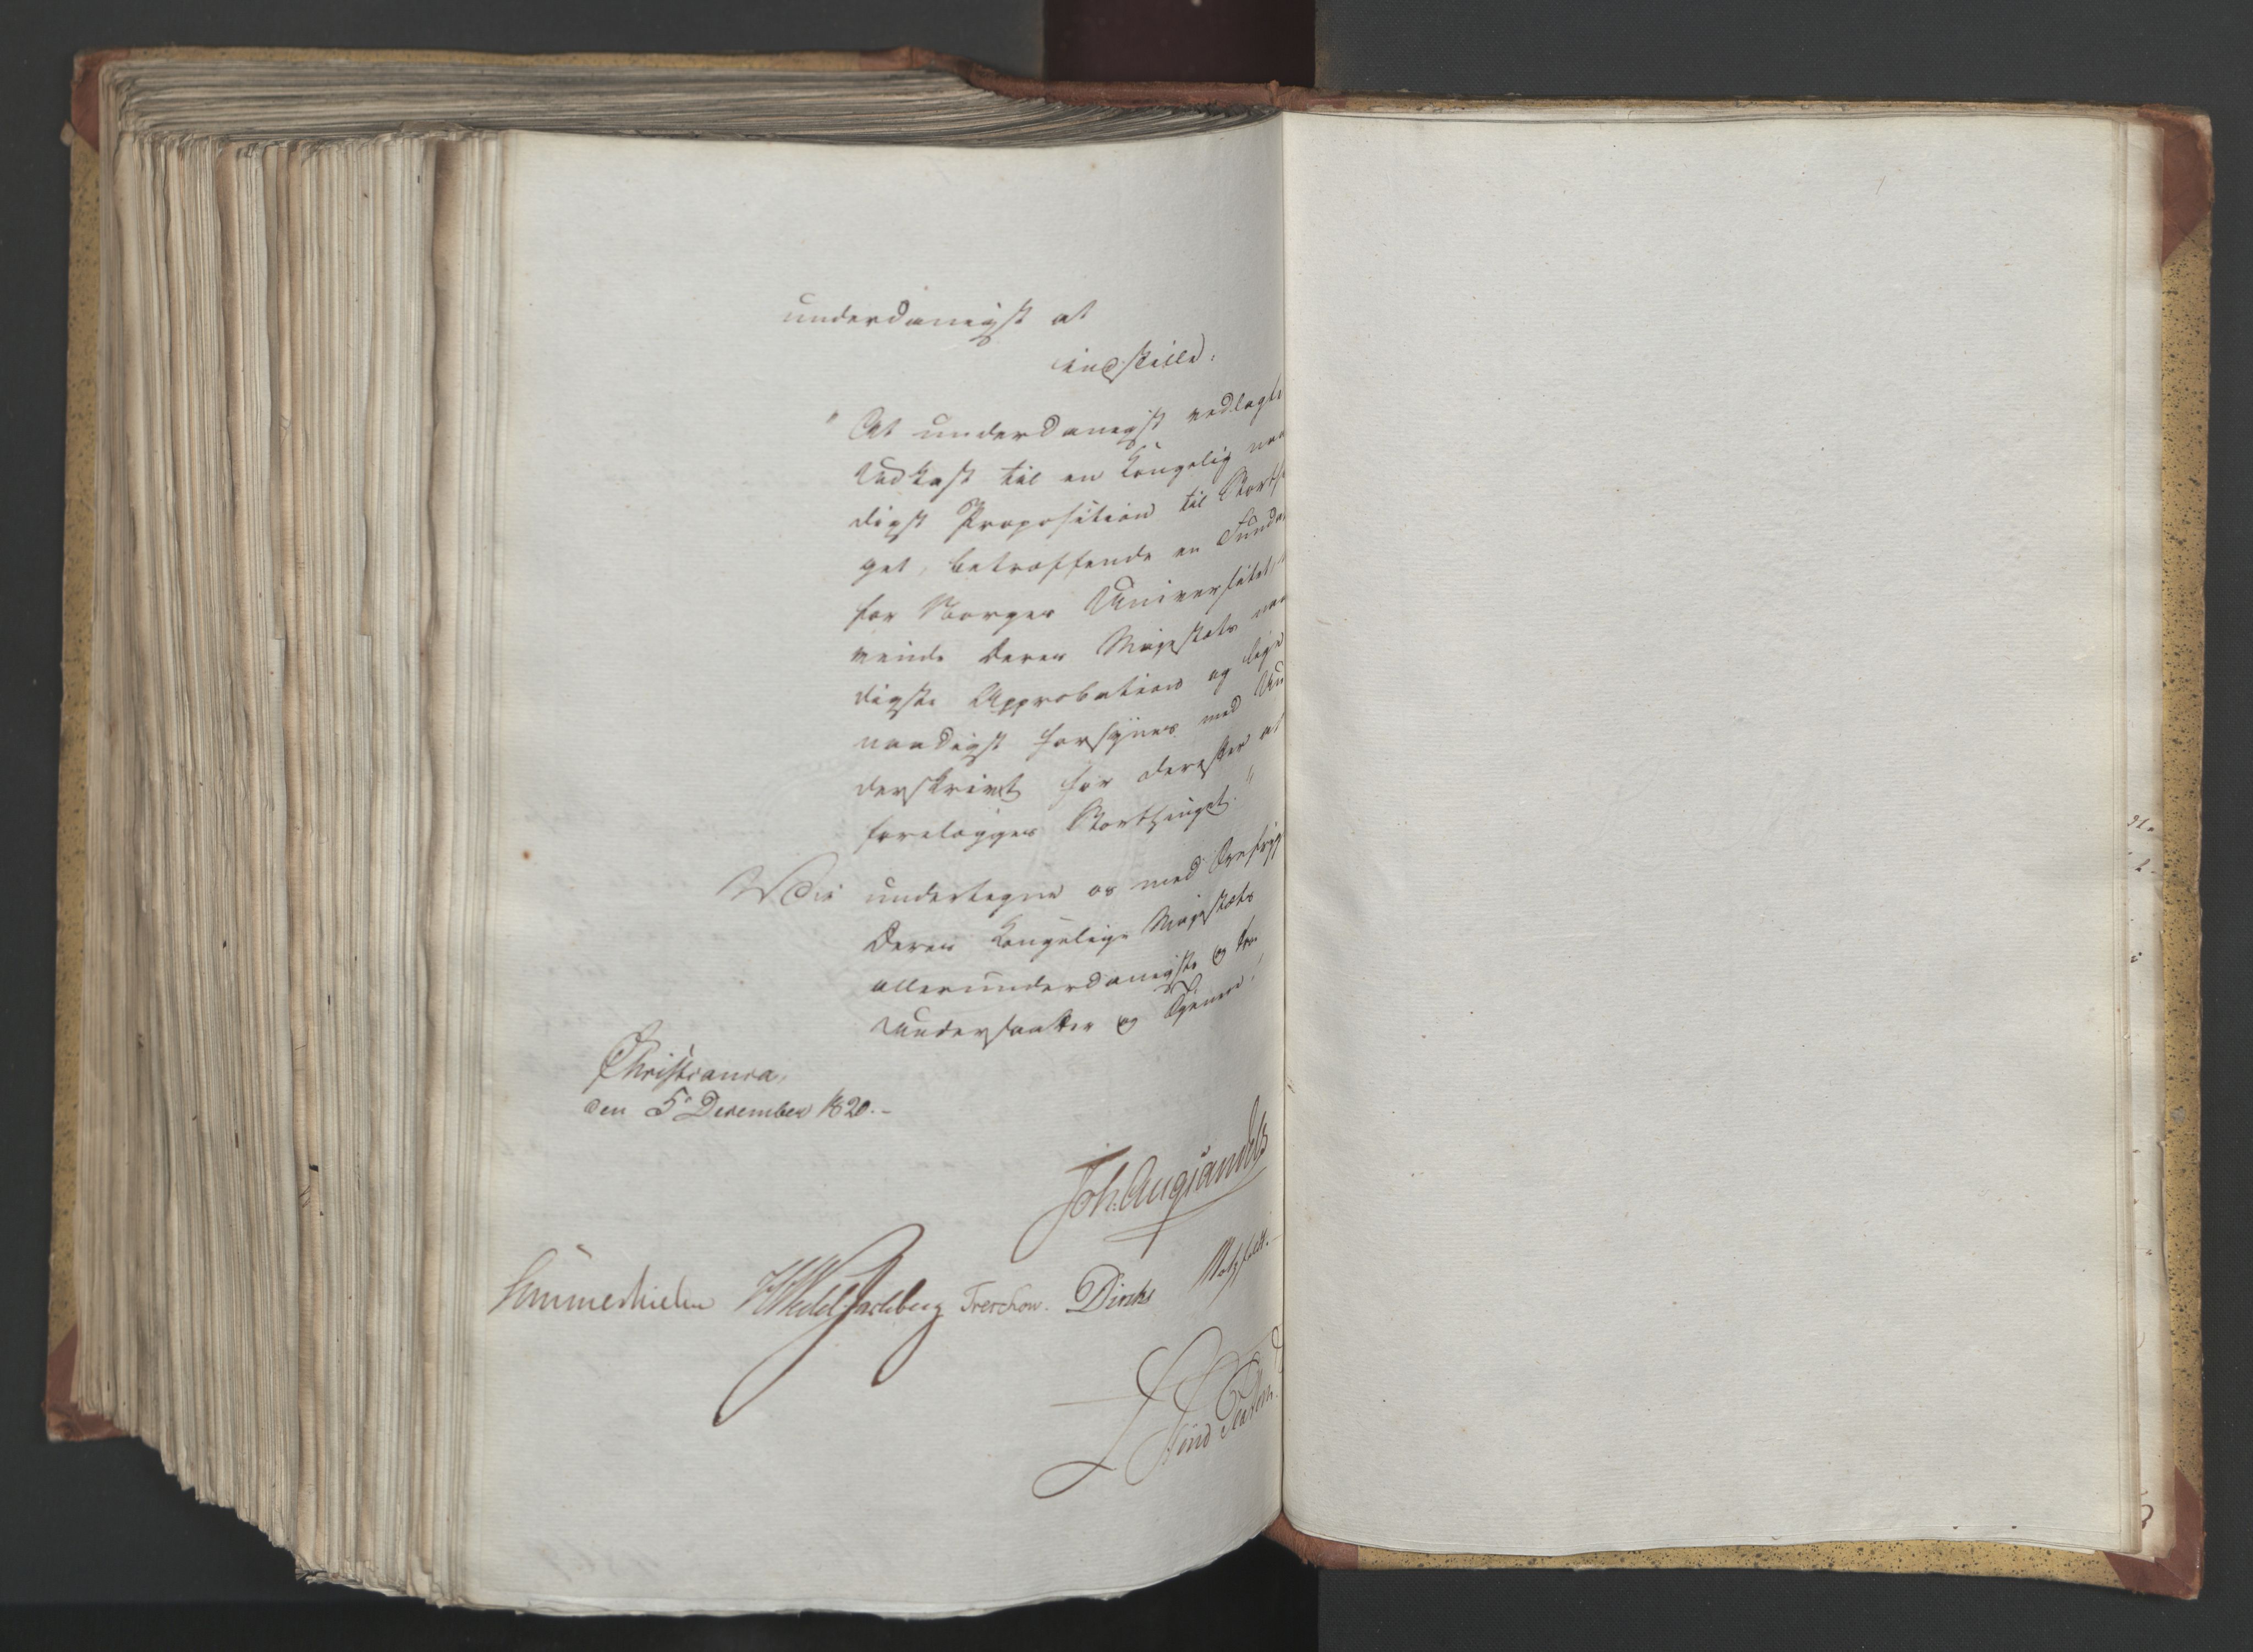 underdanigst at
indstille:
" At underdanigst vedlagte
Udkast til en Kongelig naa
digst Proposition til Storthi
get, betræffende en Funda
for Norges Universitet,
vinde Deres Majestæts naa
digste Approbation og
naadigst forsynes med Un
derskrivt for derefter at
forelægges Storthinget."
Vi undertegne os med
Deres Kongelige Majestæts
allerunderdanigste og tro
Undersaatter og Tjenere.
Christiania,
den 5 December 1820.-
Joh: Aug: Sandels
Sommerhielm HWedel Jarlsberg Treschow. Diriks Motzfeldt.